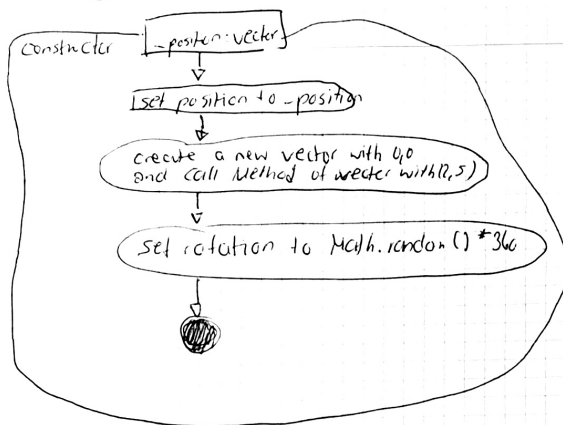 constructor
_position: vector
set position to _position
create a new vector with 0,0
and call Method of vector with(2,5)
set rotation to Math.random() *360